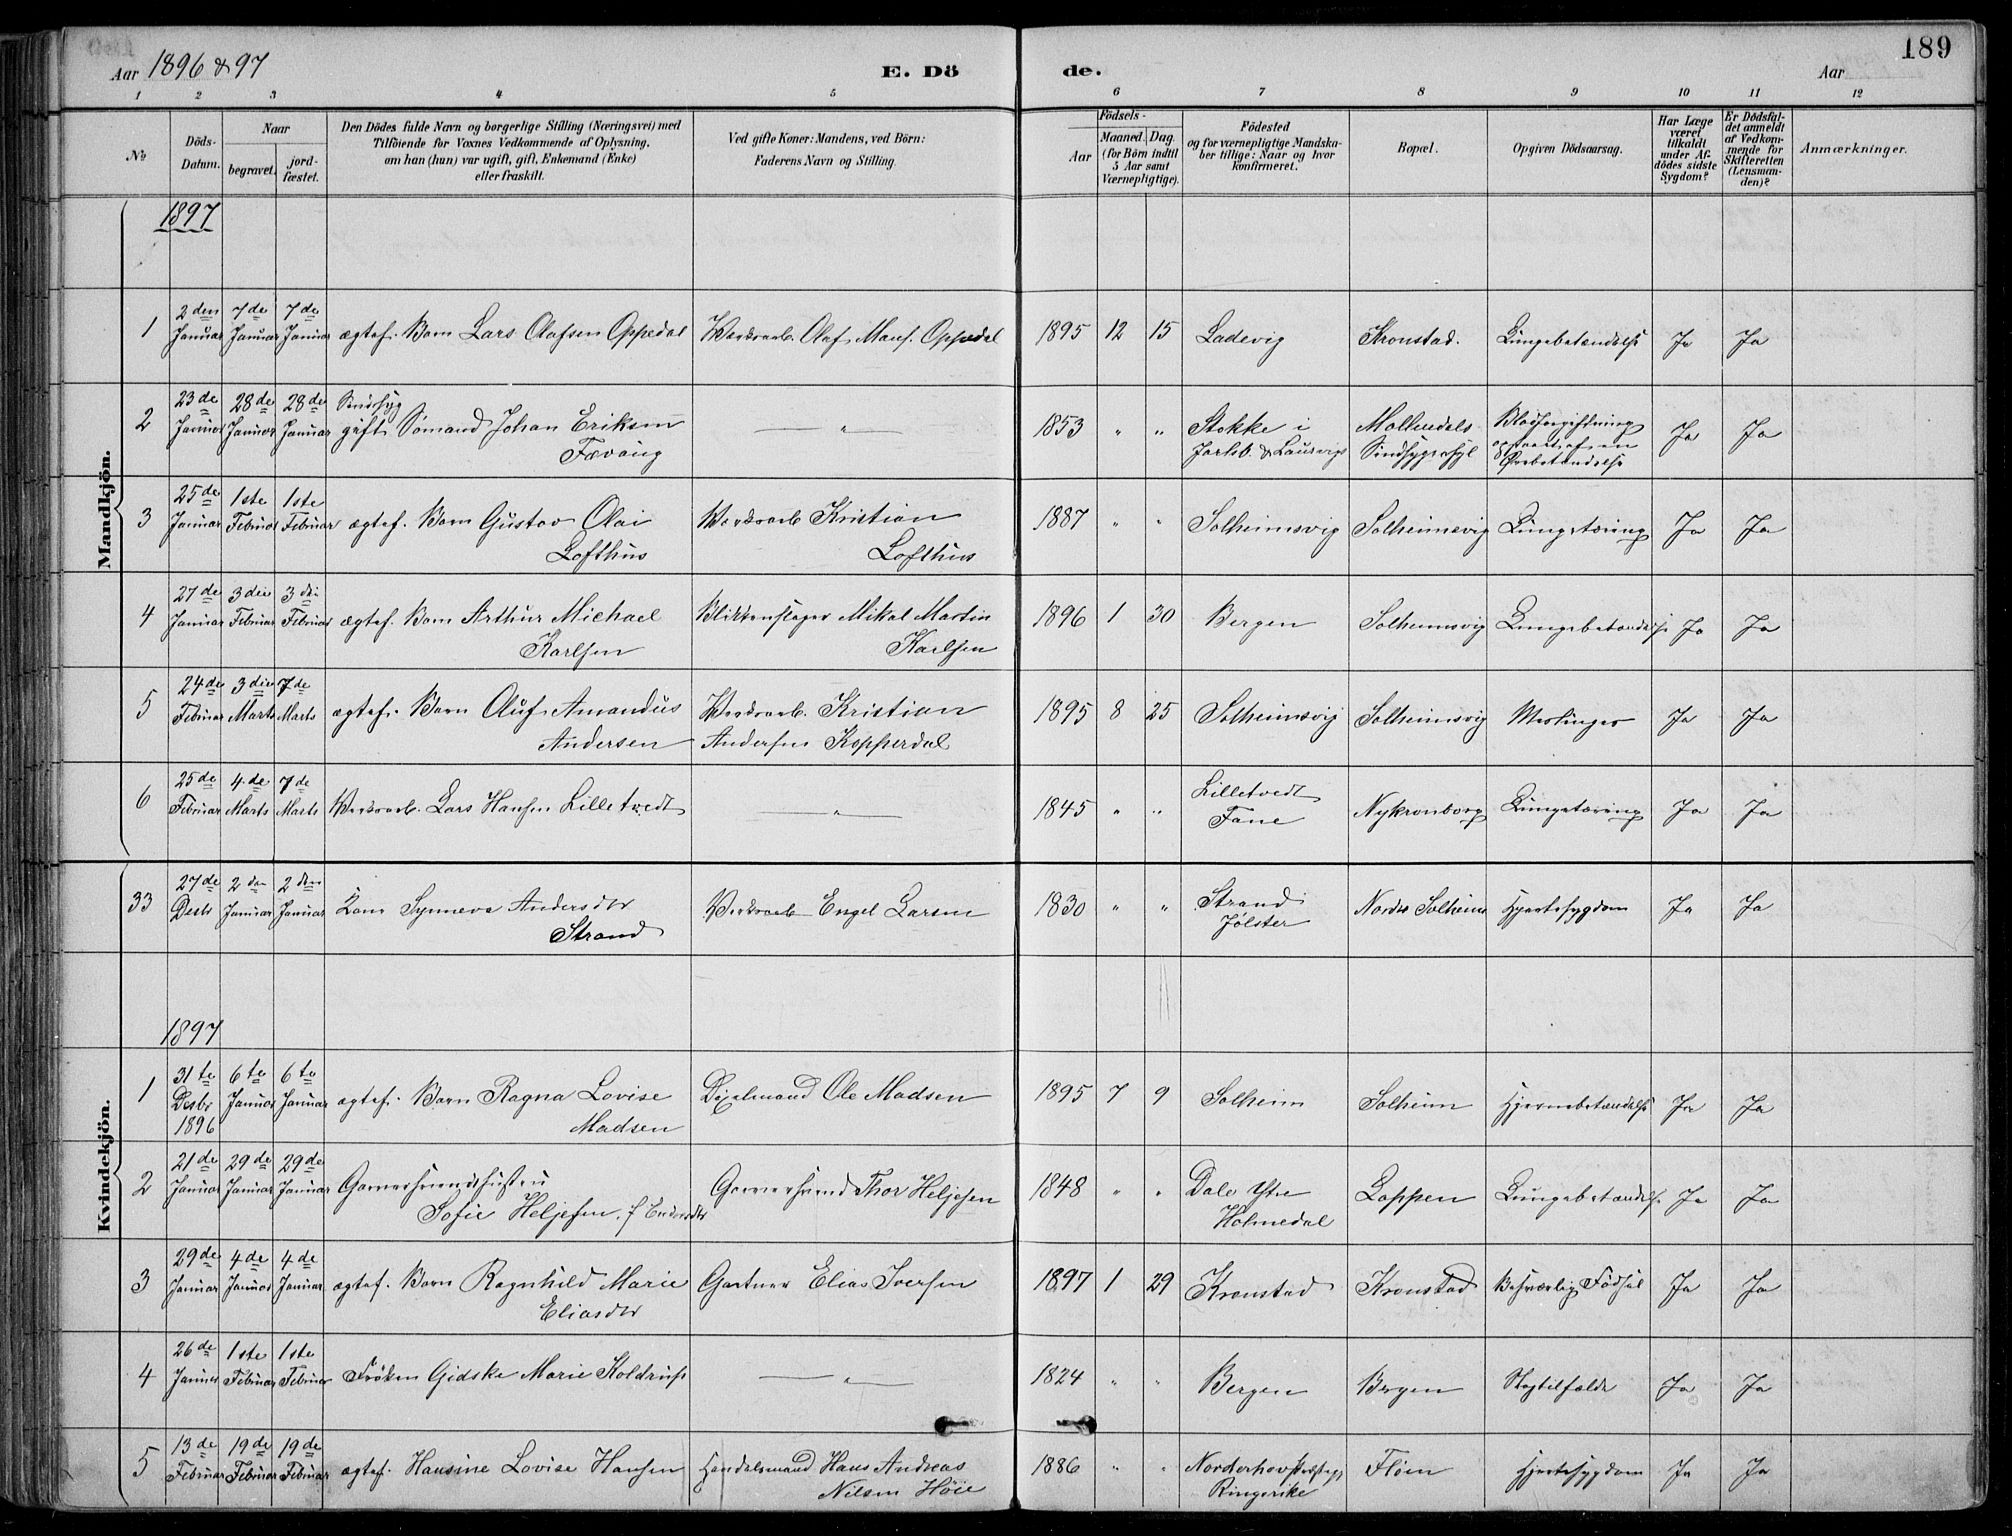 Aar 1896 & 97
E. Dö
de.
Aar
189
1 2 3 4 5 6 7 8 9 10 11 12
No
Döds-Datum.
Naar
begravet.
jord-fæstet.
Den Dödes fulde Navn og borgerlige Stilling (Næringsvei) med
Tilföiende for Voxnes Vedkommende af Oplysning,
om han (hun) var ugift, gift, Enkemand (Enke)
eller fraskilt.
Ved gifte Koner: Mandens, ved Börn:
Faderens Navn og Stilling.
Födsels-
Aar
Maaned. Dag.
(for Börn indtil
5 Aar samt
Værnepligtige).
Födested
og for værnepligtige Mandska-
ber tillige: Naar og hvor
konfirmeret.
Bopæl.
Opgiven Dödsaarsag.
Har Læge
været
tilkaldt
under Af-
dödes sidste
Sygdom?
Er Dödsfal-
det anmeldt
af Vedkom-
mende for
Skifteretten
(Lensman-
den)?
Anmærkninger.
Mandkjön.
1897
1 2den Januar 7de Januar 7de Januar ægtef. Barn Lars Olafsen Oppedal Værksarb. Olaf Mons. Oppedal 1895 12 15 Ladevig Kronstad. Lungebetændelse Ja Ja
2 23de Januar 28de Januar 28de Januar Sindssyg
gift Sømand Johan Eriksen
Fævang — " — 1853 " " Stokke i
Jarlsb. & Laurvigs Møllendals
Sindsygeasyl Blodforgiftning
opstaaet af en
Ørebetændelse Ja Ja
3 25de Januar 1ste Februar 1ste Februar ægtef. Barn Gustav Olai
Lofthus Værksarb Kristian
Lofthus 1887 " " Solheimsvig Solheimsvig Lungetæring Ja Ja
4 27de Januar 3die Februar 3die Februar ægtef. Barn Arthur Michael
Karlsen Blikkenslager Mikal Martin
Karlsen 1896 1 30 Bergen Solheimsvig Lungebetændelse Ja Ja
5 24de Februar 3die Marts 7de Marts ægtef. Barn Oluf Amandus
Andersen Værksarb. Kristian
Andersen Kopperdal 1895 8 25 Solheimsvig Solheimsvig Meslinger Ja Ja
6 25de Februar 4de Marts 7de Marts Værksarb. Lars Hansen Lilletvedt — " — 1845 " " Lilletvedt
Fane Nykronborg Lungetæring Ja Ja
Kvindekjön.
33 27de Desbr 2den Januar 2den Januar Kone Synneve Andersdtr
Strand Værksarb Engel Larsen 1830 " " Strand
Jølster Nordre Solheim Hjertesygdom Ja Ja
1897
1 31te Desbr 1896 6te Januar 6te Januar ægtef. Barn Ragna Lovise
Madsen Ole Madsen 1895 7 9 Solheim Solheim Hjernebetændelse Ja Ja
2 21de Januar 29de Januar 29de Januar Garversvendshustru
Sofie Heljesen, f. Garversvend Thor Heljesen 1848 " " Dale Ytre
Holmedal Lappen Lungebetændelse Ja Ja
3 29de Januar 4de Januar 4de Januar ægtef. Barn Ragnhild Marie
Eliasdtr Gartner Elias Iversen 1897 1 29 Kronstad Kronstad Besværlig Fødsel Ja Ja
4 26de Januar 1ste Februar 1ste Februar Frøken Gidske Marie Koldrup — " — 1824 " " Bergen Bergen Slagtilfælde Ja Ja
5 13de Februar 19de Februar 19de Februar ægtef. Hansine Lovise Hansen Handelsmand Hans Andreas
Nilsen Høie 1886 " " Norderhov
Ringerike Fløen Hjertesygdom Ja Ja